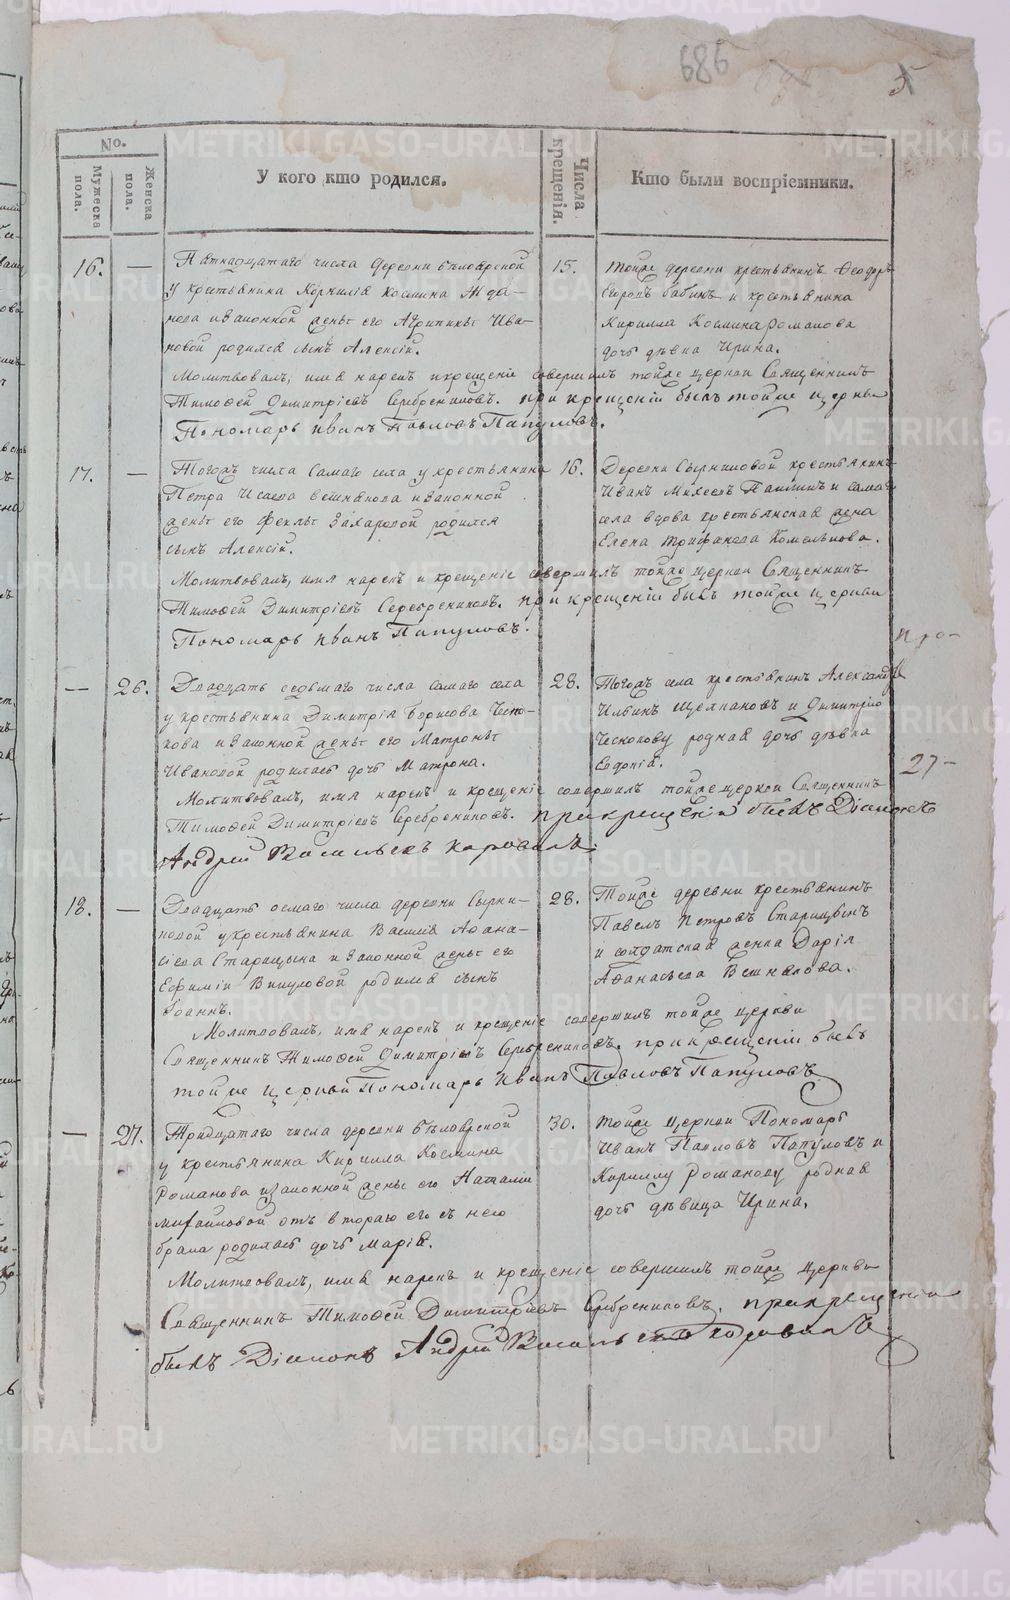 686
5
No.
Мужеска пола.
Женска пола.
У кого кто родился.
Числа крещенія.
Кто были воспріемники.
16. — Пятнадцатаго числа деревни Бѣлоярской
у крестьянина Корнилія Космина Жда-
нова и законной жены его Агрипины Ива-
новой родился сынъ Алексій.
15. Тойже деревни крестьянинъ Ѳеодоръ
Егоровъ Бабинъ и крестьянина
Кирилла Космина Романова
дочь дѣвка Ирина.
Молитвовалъ, имя нарекъ и крещеніе совершилъ тойже церкви Священникъ
Тимоѳей Димитріевъ Серебрениковъ. При крещеніи былъ тойже церкви
Пономарь Иванъ Павловъ Папуловъ.
17. — Тогожъ числа самаго села у крестьянина
Петра Исаева Вешнякова и законной
жены его Феклы Захаровой родился
сынъ Алексій.
16. Деревни Сырниковой крестьянинъ
Иванъ и сама-
села вдова крестьянская жена
Елена Трифанова
Молитвовалъ, имя нарекъ и крещеніе совершилъ тойже церкви Священникъ
Тимоѳей Димитріевъ Серебрениковъ. При крещеніи былъ тойже церкви
Пономарь Иванъ Папуловъ.
про-
— 26. Двадцать седьмаго числа самаго села
у крестьянина Димитрія Борисова Чесно-
кова и законной жены его Матроны
Ивановой родилась дочь Матрона.
28. Тогожъ села крестьянинъ Александръ
Ильинъ и Димитрію
Чеснокову родная дочь дѣвка
Евдокія.
27-
Молитвовалъ, имя нарекъ и крещеніе совершилъ тойже церкви Священникъ
Тимоѳей Димитріевъ Серебрениковъ. При крещеніи былъ Діаконъ
Андрей Васильевъ Коровинъ.
18. — Двадцать осмаго числа деревни Сырни-
ковой у крестьянина Василія Аѳана-
сіева Старицына и законной жены его
Евфиміи Викуловой родился сынъ
Іоаннъ.
28. Тойже деревни крестьянинъ
Павелъ Петровъ Старицынъ
и солдатская женка Дарія
Аѳанасьева Вешнякова.
Молитвовалъ, имя нарекъ и крещеніе совершилъ тойже церкви
Священникъ Тимоѳей Димитріевъ Серебрениковъ. При крещеніи былъ
тойже церкви Пономарь Иванъ Павловъ Папуловъ
— 27. Тридцатаго числа деревни Бѣлоярской
у крестьянина Кирилла Космина
Романова и законной жены его Наталіи
Михайловой отъ втораго его съ нею
брака родилась дочь Марія.
30. Тойже церкви Пономарь
Иванъ Павловъ Папуловъ и
Кириллу Романову родная
дочь дѣвица Ирина.
Молитвовалъ, имя нарекъ и крещеніе совершилъ тойже церкви
Священникъ Тимоѳей Димитріевъ Серебрениковъ. При крещеніи
былъ Діаконъ Андрей Васильевъ Коровинъ
METRIKI.GASO-URAL.RU